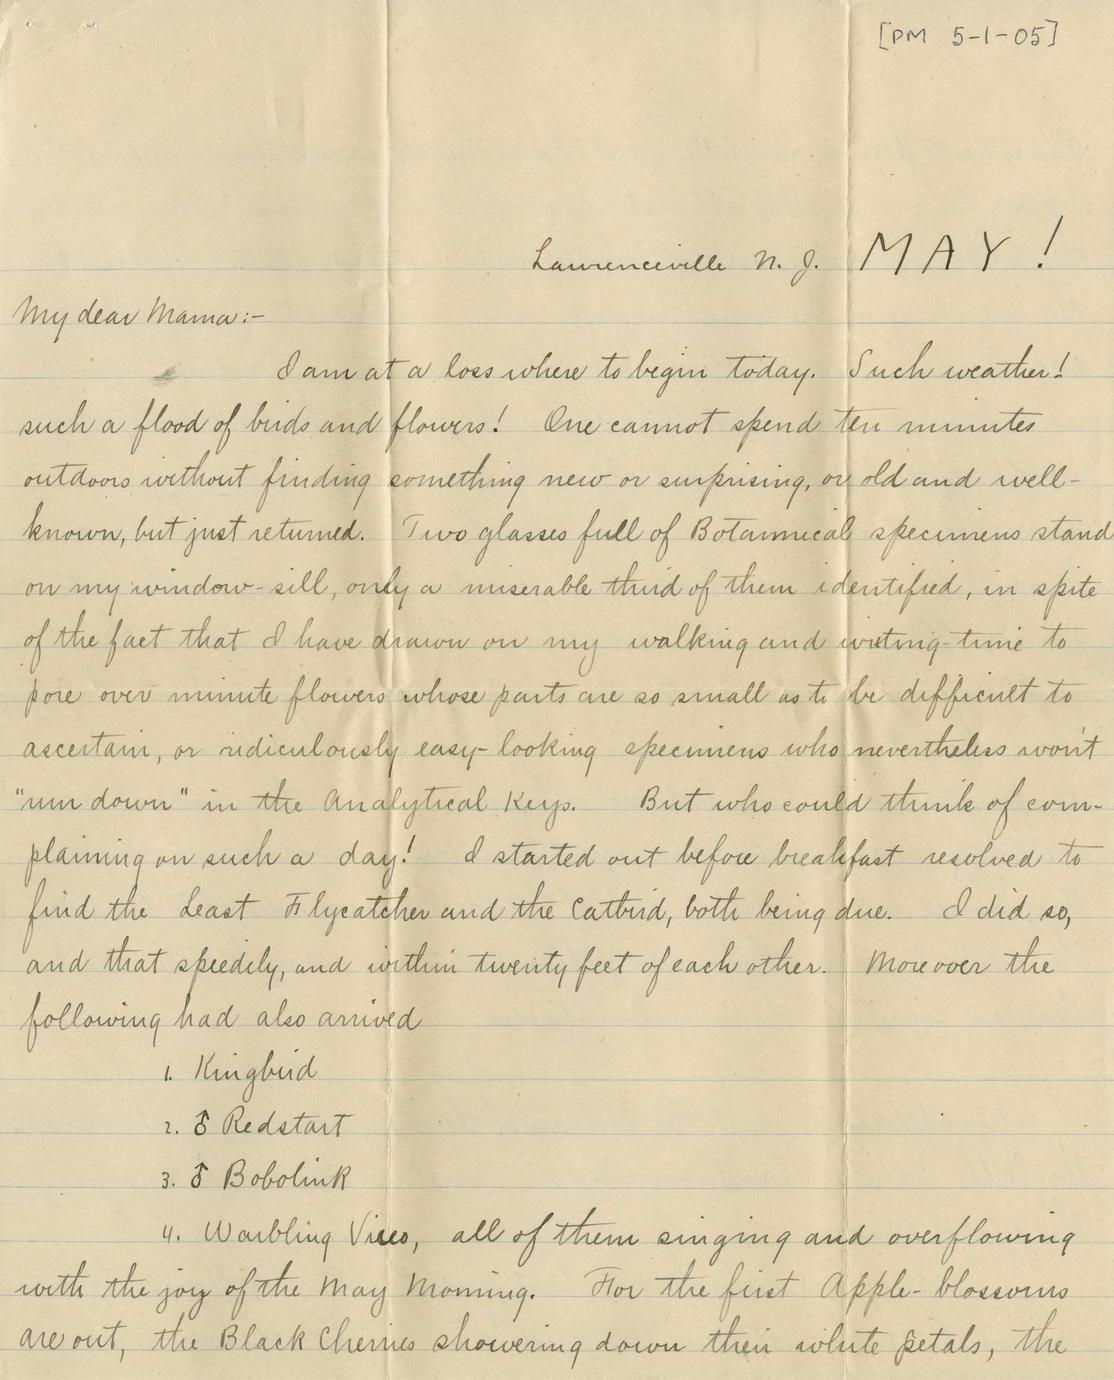 [PM 5-1-05]
Lawrenceville N. J. MAY!
My dear Mama:-
I am at a loss where to begin today. Such weather!
such a flood of birds and flowers! One cannot spend ten minutes
outdoors without finding something new or surprising, or old and well-
known, but just returned. Two glasses full of Botannical specimens stand
on my window-sill, only a miserable third of them identified, in spite
of the fact that I have drawn on my walking and writing-time to
pore over minute flowers whose parts are so small as to be difficult to
ascertain, or ridiculously easy-looking specimens who nevertheless won't
"run down" in the Analytical Keys. But who could think of com-
plaining on such a day! I started out before breakfast resolved to
find the Least Flycatcher and the Catbird, both being due. I did so,
and that speedily, and within twenty feet of each other. Moreover the
following had also arrived
1. Kingbird
2. ♂ Redstart
3. ♂ Bobolink
4. Warbling Vireo, all of them singing and overflowing
with the joy of the May Morning. For the first Apple-blossoms
are out, the Black Cherries showering down their white petals, the